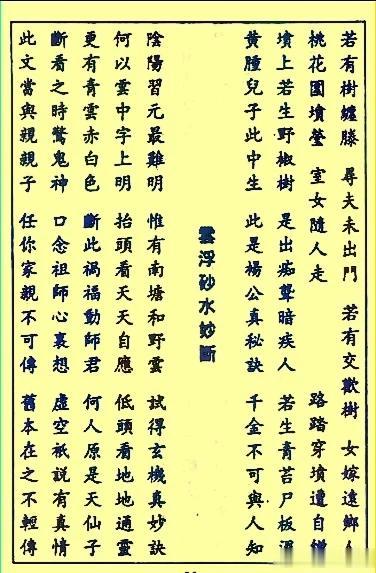 若有樹纏滕 尋夫未出門 若有交歡樹 女嫁遠鄉人
桃花園墳瑩 室女隨人走 路踏穿墳遭自縊
墳上若生野椒樹 是出痴聾暗疾人 若生青苔尸板濕
黄腫兒子此中生 此是楊公真秘訣 千金不可與人知
雲浮砂水妙斷
陰陽習元最難明 惟有南塘和野雲 試得玄機真妙訣
何以雲中字上明 抬頭看天天自應 低頭看地地通靈
更有青雲赤白色 斷此禍福動師君 何人原是天仙子
斷看之時驚鬼神 口念祖師心裏想 虛空祇說有真情
此文當與親親子 任你家親不可傳 舊本在之不輕傳